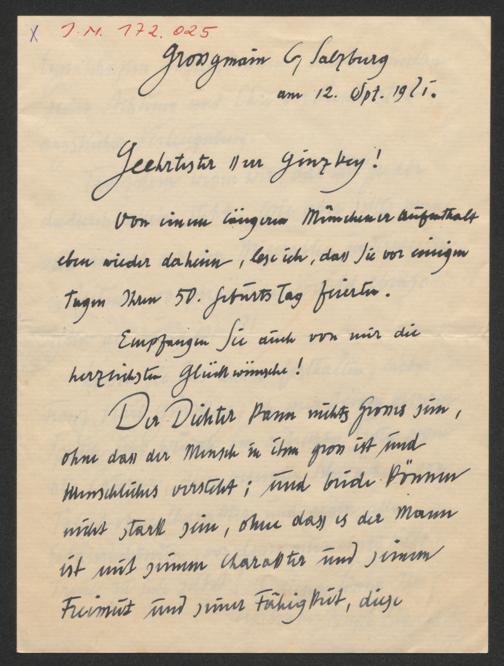 J.N. 172.025
Grossgmain b/ Salzburg
am 12. Spt. 1921.
Geehrtester Herr Ginzkey!
Von einem längeren Münchener Aufenthalt
eben wieder daheim, lese ich, dass Sie vor einigen
Tagen Ihren 50. Geburtstag feierten.
Empfangen Sie auch von mir die
herzlichsten Glückwünsche!
Der Dichter kann nichts Grosses sein,
ohne dass der Mensch in ihm gross ist und
Menschliches versteht; und beide können
nicht stark sein, ohne dass es der Mann
ist mit seinem Charakter und seinem
Freimut und seiner Fähigkeit, diese